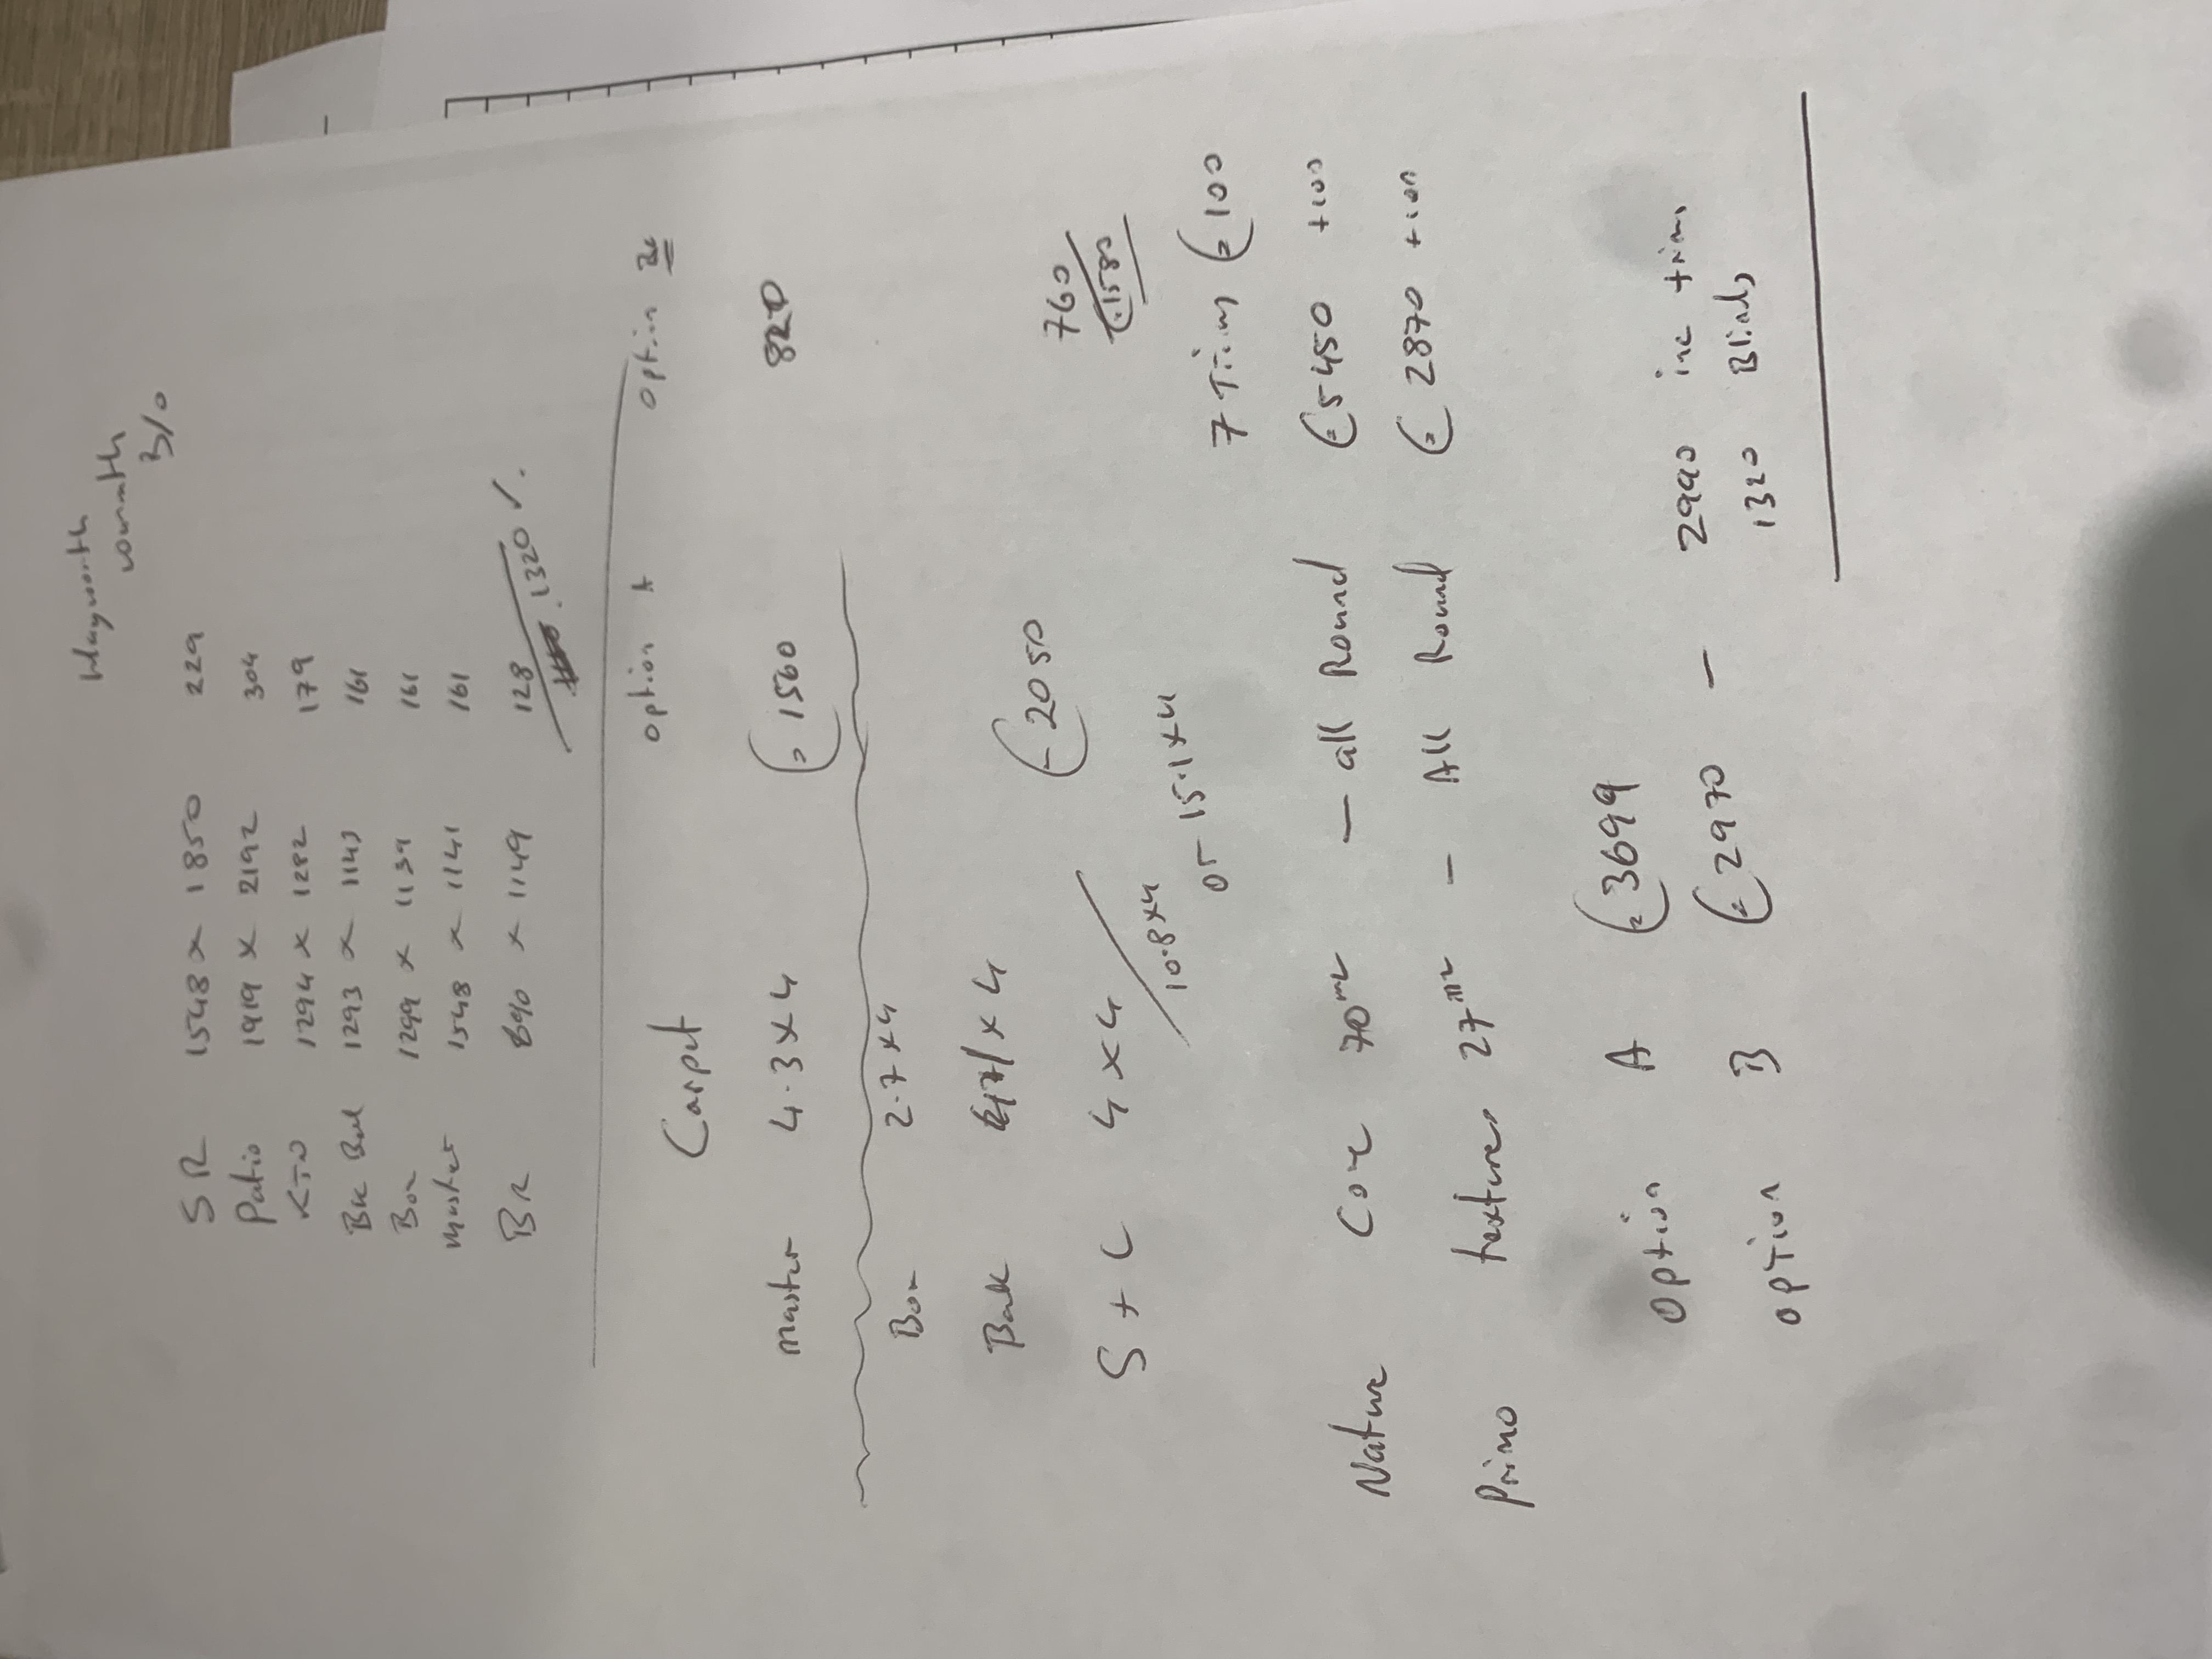 Hayworth
3/0
SR 1548 x 1850 229
Patio 1919 x 2192 304
1294 x 1282 179
Bk Bed 1293 x 1143 161
Box 1299 x 1139 161
Master 1548 x 1141 161
BR 690 x 1149 128
1320
option A option
Carpet
Master 4.3 x 4 £1560 820
Box 2.7 x 4
Back x 4 £2050 760
£1580
S + C 4 x 4
10.8 x 4
or 15.1 x 4
7 Trims £100
Nature Core 70m2 - all Round £5450 +100
Primo textures 27m2 - All Round £2870 +100
Option A £3699
option B £2970 - 2990 inc trims
1320 Blinds